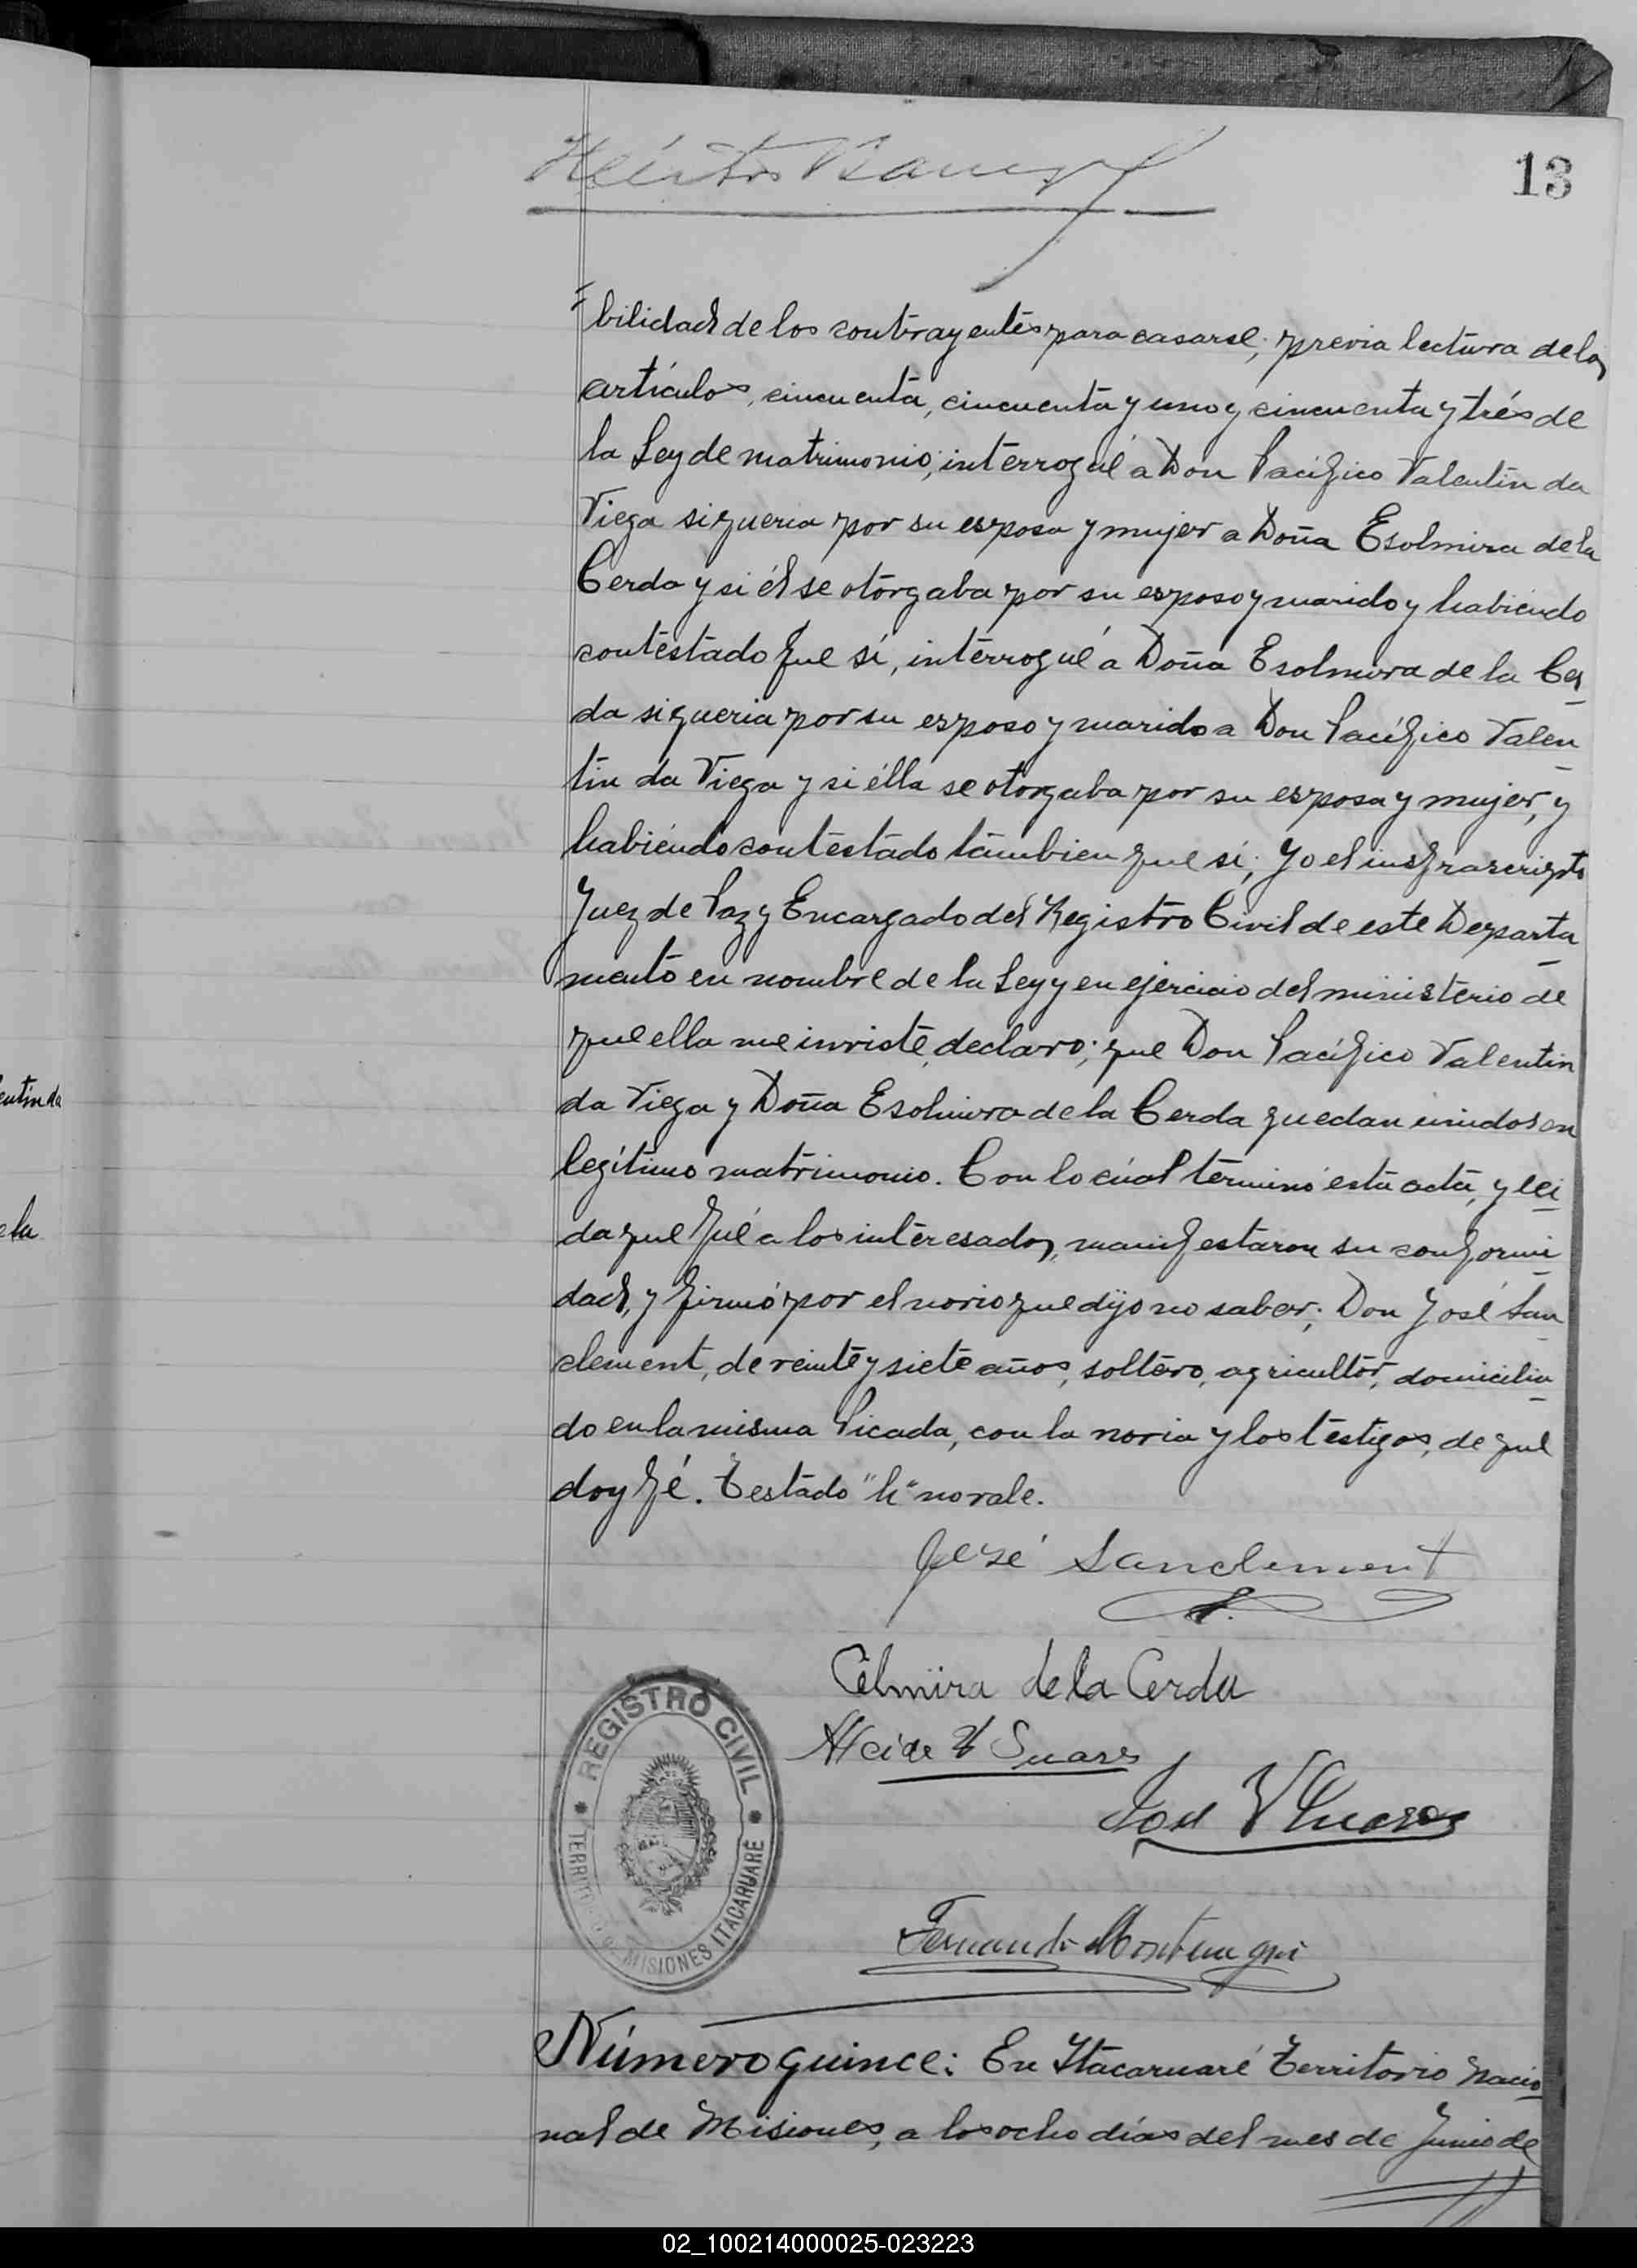 13
=bilidad de los contrayentes para casarse; previa lectura de los
artículos, cincuenta, cincuenta y uno y cincuenta y trés de
la Ley de matrimonio; interrogué a Don Pacífico Valentin da
Viega si queria por su esposa y mujer a Doña Esolmira de la
Cerda y si él se otorgaba por su esposo y marido y habiendo
contestado que sí, interrogué a Doña Esolmira de la Cer
da si queria por su esposo y marido a Don Pacífico Valen
tin da Viega y si élla se otorgaba por su esposa y mujer, y
habiendo contestado tambien que sí; Yo el infrascripto
Juez de Paz y Encargado del Registro Civil de este Departa
mento en nombre de la Ley y en ejercicio del ministerio de
que ella me inviste, declaro; que Don Pacífico Valentin
da Viega y Doña Esolmira de la Cerda quedan unidos en
legítimo matrimonio. Con lo cúal terminó esta acta, y lei
da que fué a los interesados, manifestaron su conformi
dad, y firmó por el novio que dijo no saber; Don José San
clement, de veinte y siete años, soltero, agricultor, domicilia
do en la misma Picada, con la novia y los testigos, de que
doy fé. Testado "h" no vale.
entin da
e la
José Sanclement
Celmira de la Cerda
Suares
REGISTRO CIVIL
TERRITORIO DE MISIONES ITACARUARÉ
Fernando Montenegro
Número quince: En Itacaruaré Territorio Nacio
nal de Misiones, a los ocho días del mes de Junio de
02_100214000025-023223